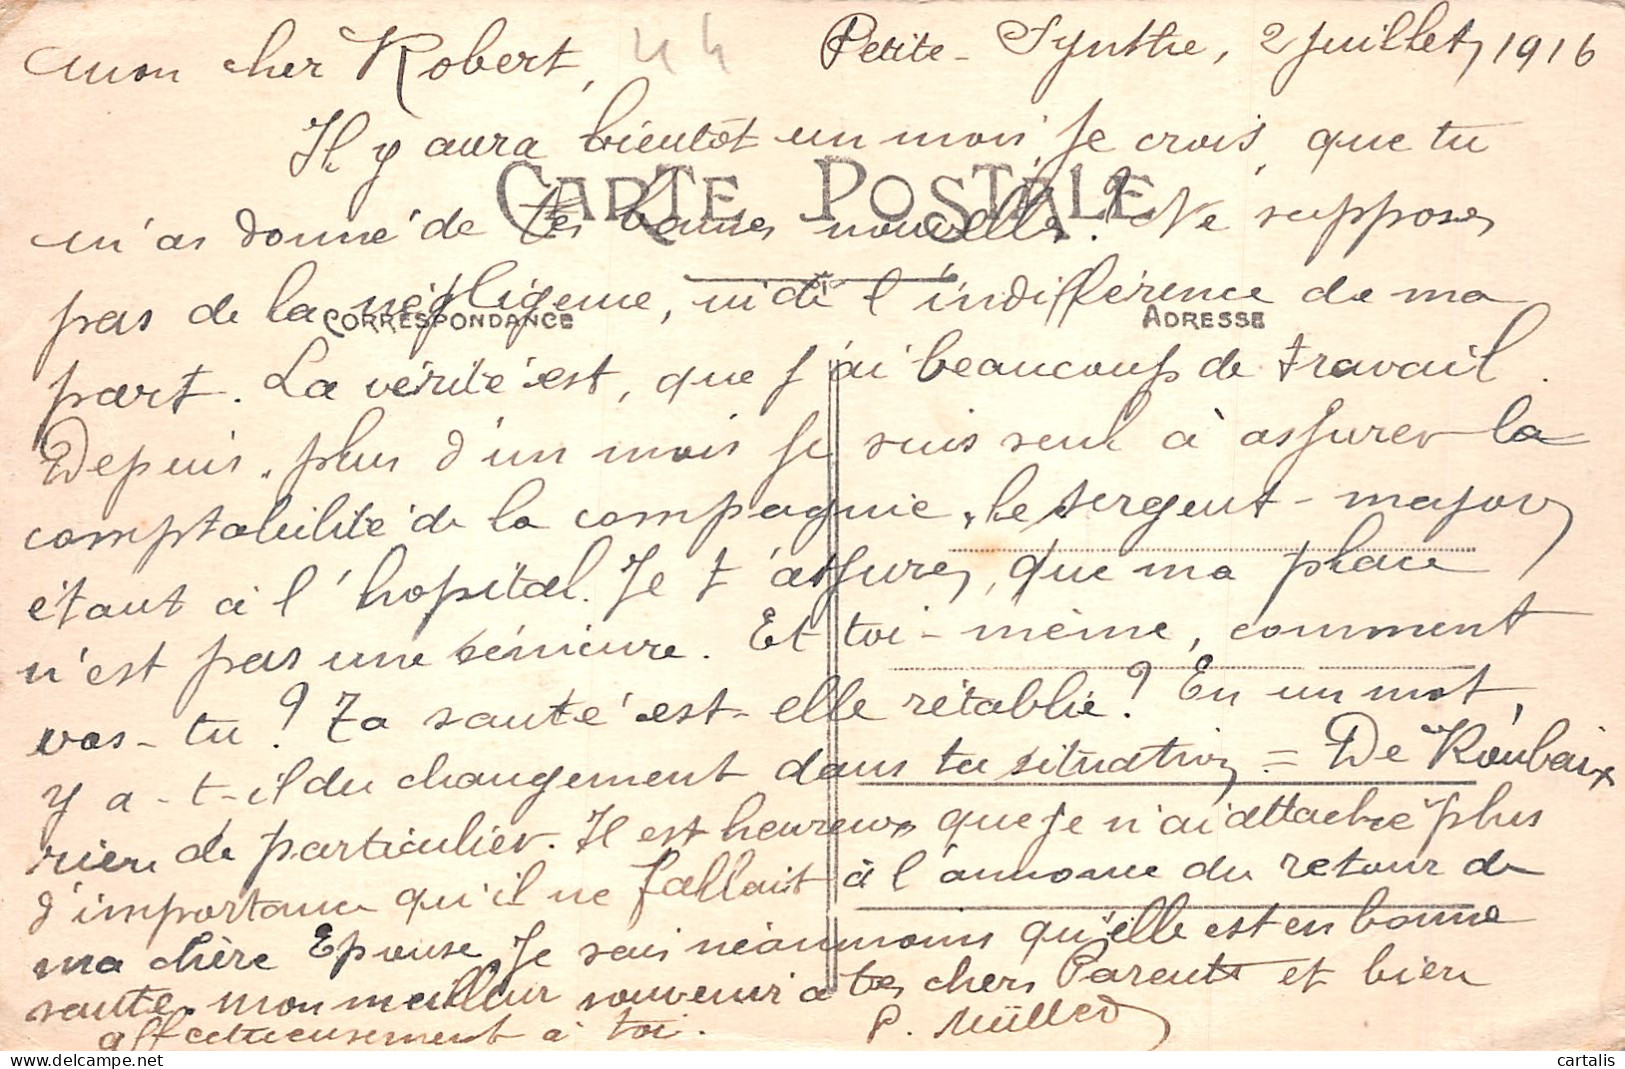 Petite-Synthe, 2 Juillet, 1916
Mon cher Robert, 44
Il y aura bientôt un mois, je crois, que tu
CARTE POSTALE
m'as donné de tes bonnes nouvelles? Ne supposes
pas de la négligence, ni de l'indifférence de ma
CORRESPONDANCE ADRESSE
part. La vérité est, que j'ai beaucoup de travail.
Depuis plus d'un mois je suis seul à assurer la
comptabilité de la compagnie, le sergent-major
étant à l'hôpital. Je t'assure, que ma place
n'est pas une sénicure. Et toi-même, comment
vas-tu? Ta santé est-elle rétablie? En un mot,
y a-t-il du changement dans ta situation = De Roubaix
rien de particulier. Il est heureux que je n'ai attaché plus
d'importance qu'il ne fallait à l'annonce du retour de
ma chère Epouse. Je sais néanmoins qu'elle est en bonne
santé. Mon meilleur souvenir à tes chers Parents et bien
affectueusement à toi. P. Müller
cartalis